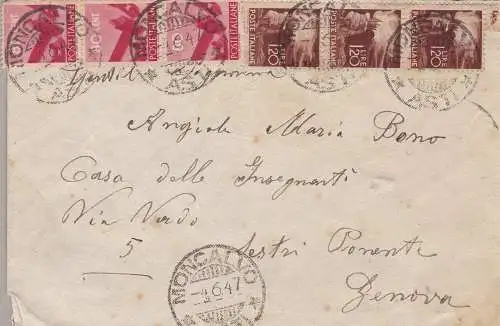 POSTE ITALIANE POSTE ITALIANE POSTE ITALIANE
LIRE 1,20 LIRE 1,20 LIRE 1,20
MONCALVO MONCALVO
ASTI ASTI
Gentil Signorina
Angiola Maria Bono
Casa delle Insegnanti
Via Verdo
5 Sestri Ponente
Genova
MONCALVO
-4.6.47